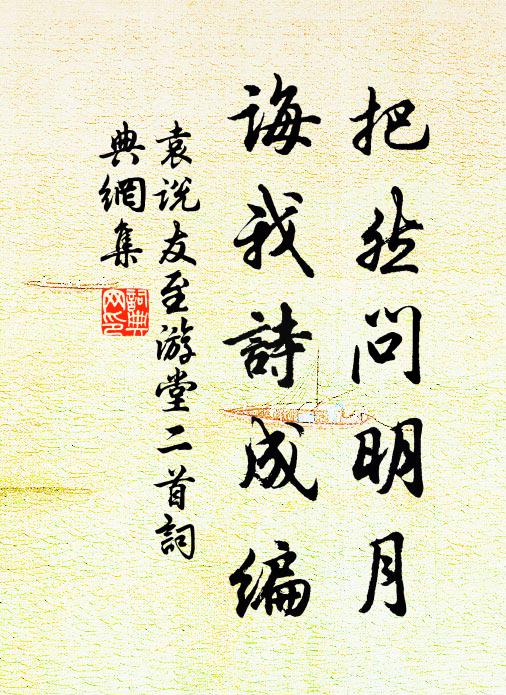 把然问明月
诲我詩成编
袁说友至游堂二首詞
典網集
詞典
网印